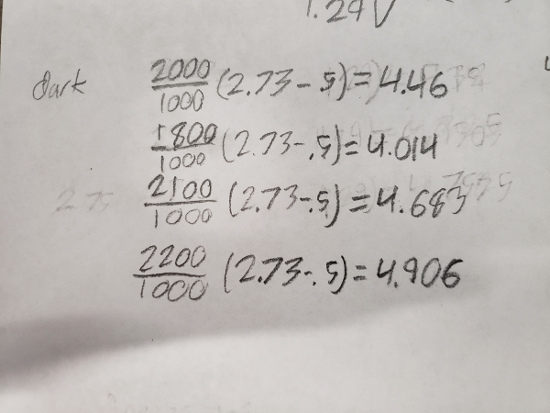 1.24V
dark 2000/1000 (2.73-.5)=4.46
1800/1000 (2.73-.5)=4.014
2100/1000 (2.73-.5)=4.683
2200/1000 (2.73-.5)=4.906